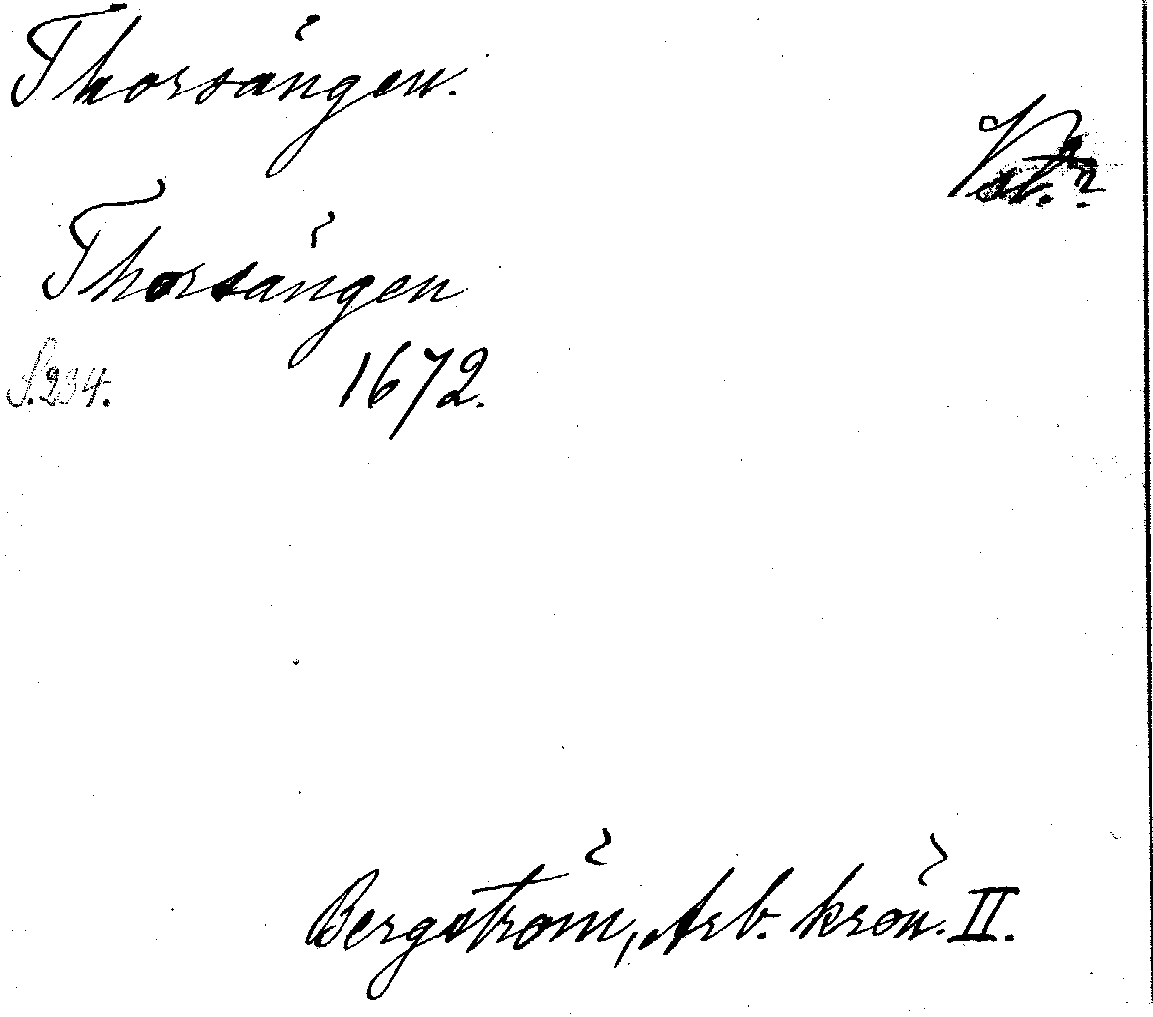 Thorsängen.
Thorsängen
S. 234. 1672.
Bergström, Arb. krön. II.